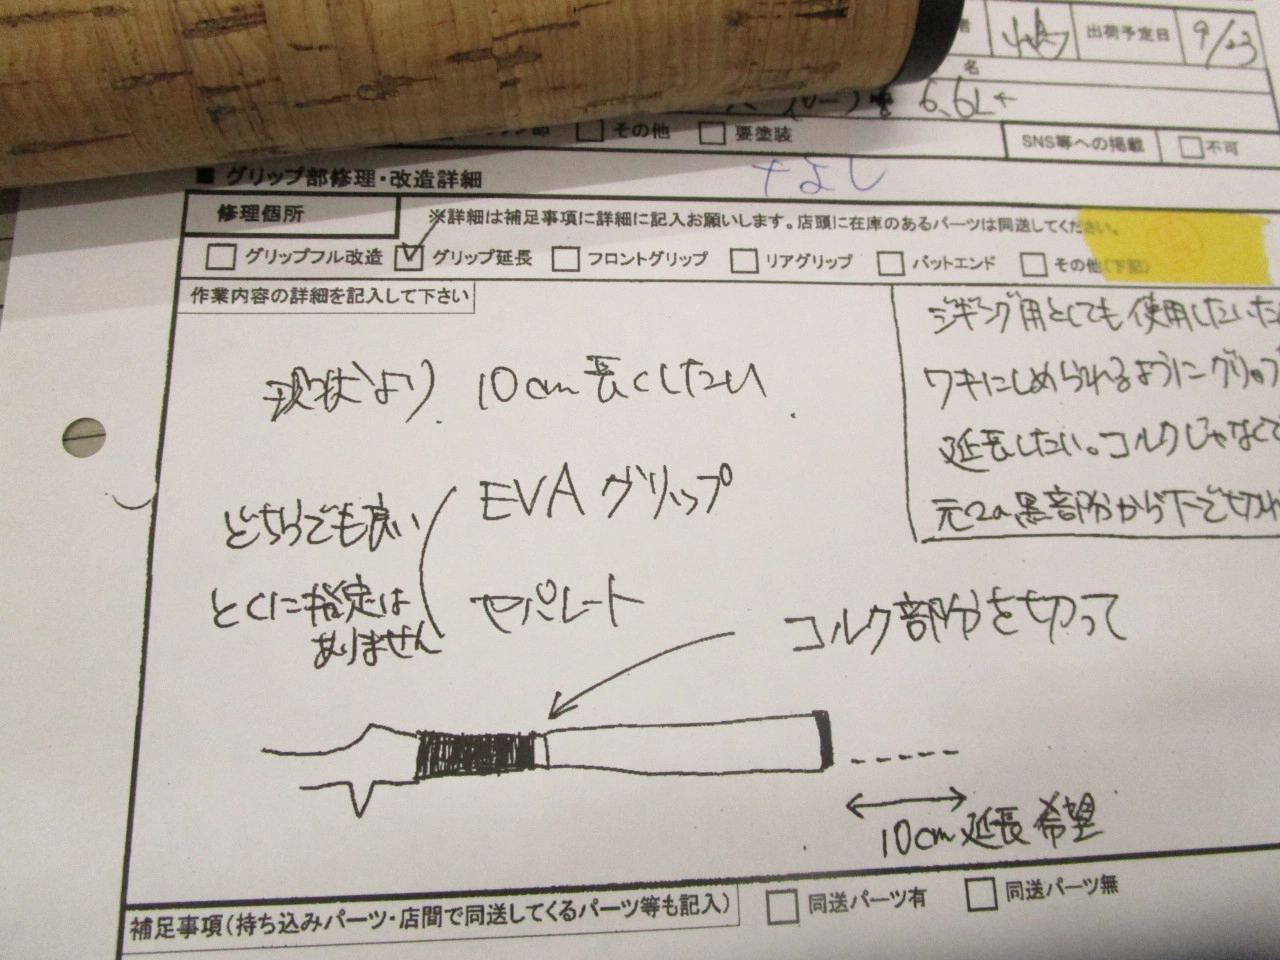 出荷予定日 9/23
名
6.6L
その他 要塗装 SNS等への掲載 不可
■ グリップ部修理・改造詳細 ナよし
修理個所 ※詳細は補足事項に詳細に記入お願いします。店頭に在庫のあるパーツは同送してください。
グリップフル改造 グリップ延長 フロントグリップ リアグリップ バットエンド その他(下記)
作業内容の詳細を記入して下さい
ジギング用としても使用したいた
ワキにしめられるようにグリップ
延長したい。コルクじゃなくて
元の黒部分から下で切れ
現状より 10cm長くしたい
EVAグリップ
どちらでも良い
セパレート
とくに指定は
ありません
コルク部分を切って
10cm延長希望
補足事項(持ち込みパーツ・店間で同送してくるパーツ等も記入) 同送パーツ有 同送パーツ無